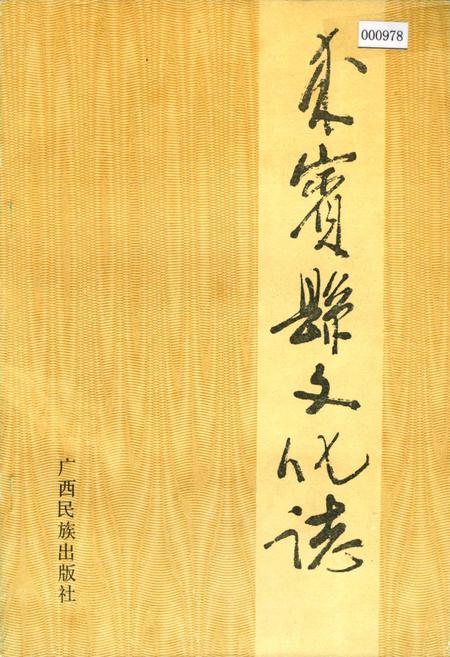 000978
來賓縣文化誌
广西民族出版社